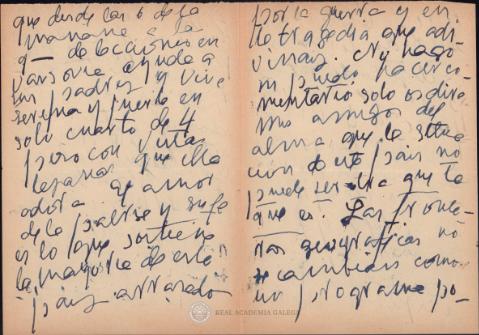 que desde las 6 de la
manana a la
9 — da lecciones en
ayuda a
sus padres y vive
serena y fuerte en
solo cuarto de 4
pero con vistas
lejanas que ella
adora. El amor
de la padres y
es lo que sostiene
la mayoria de este
pais arrasado
por la guerra y en
la tragedia que adi-
vinais. Ny hago
ni puedo hacer co-
mentario solo os dire
mis amigos del
alma que la situa
cion de este pais no
puede ser otra que la
que es. Las fronte-
ras geograficas no
se cambian como
un programa po-
REAL ACADEMIA GALEGA